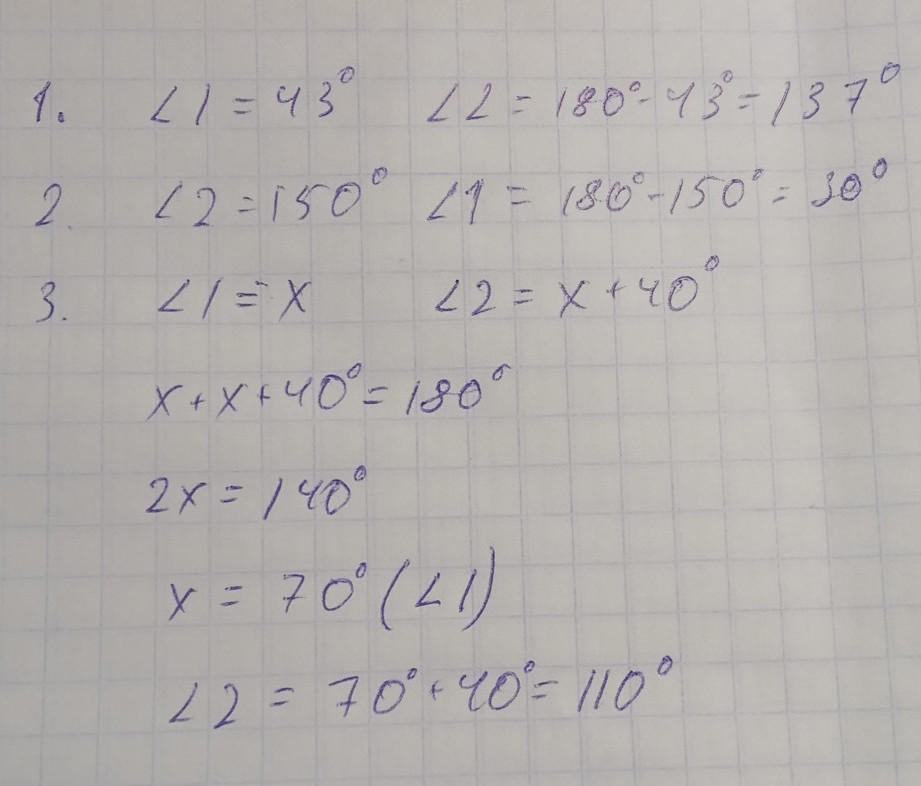 1. ∠1 = 43° ∠2 = 180° - 43° = 137°
2. ∠2 = 150° ∠1 = 180° - 150° = 30°
3. ∠1 = x ∠2 = x + 40°
x + x + 40° = 180°
2x = 140°
x = 70° (∠1)
∠2 = 70° + 40° = 110°